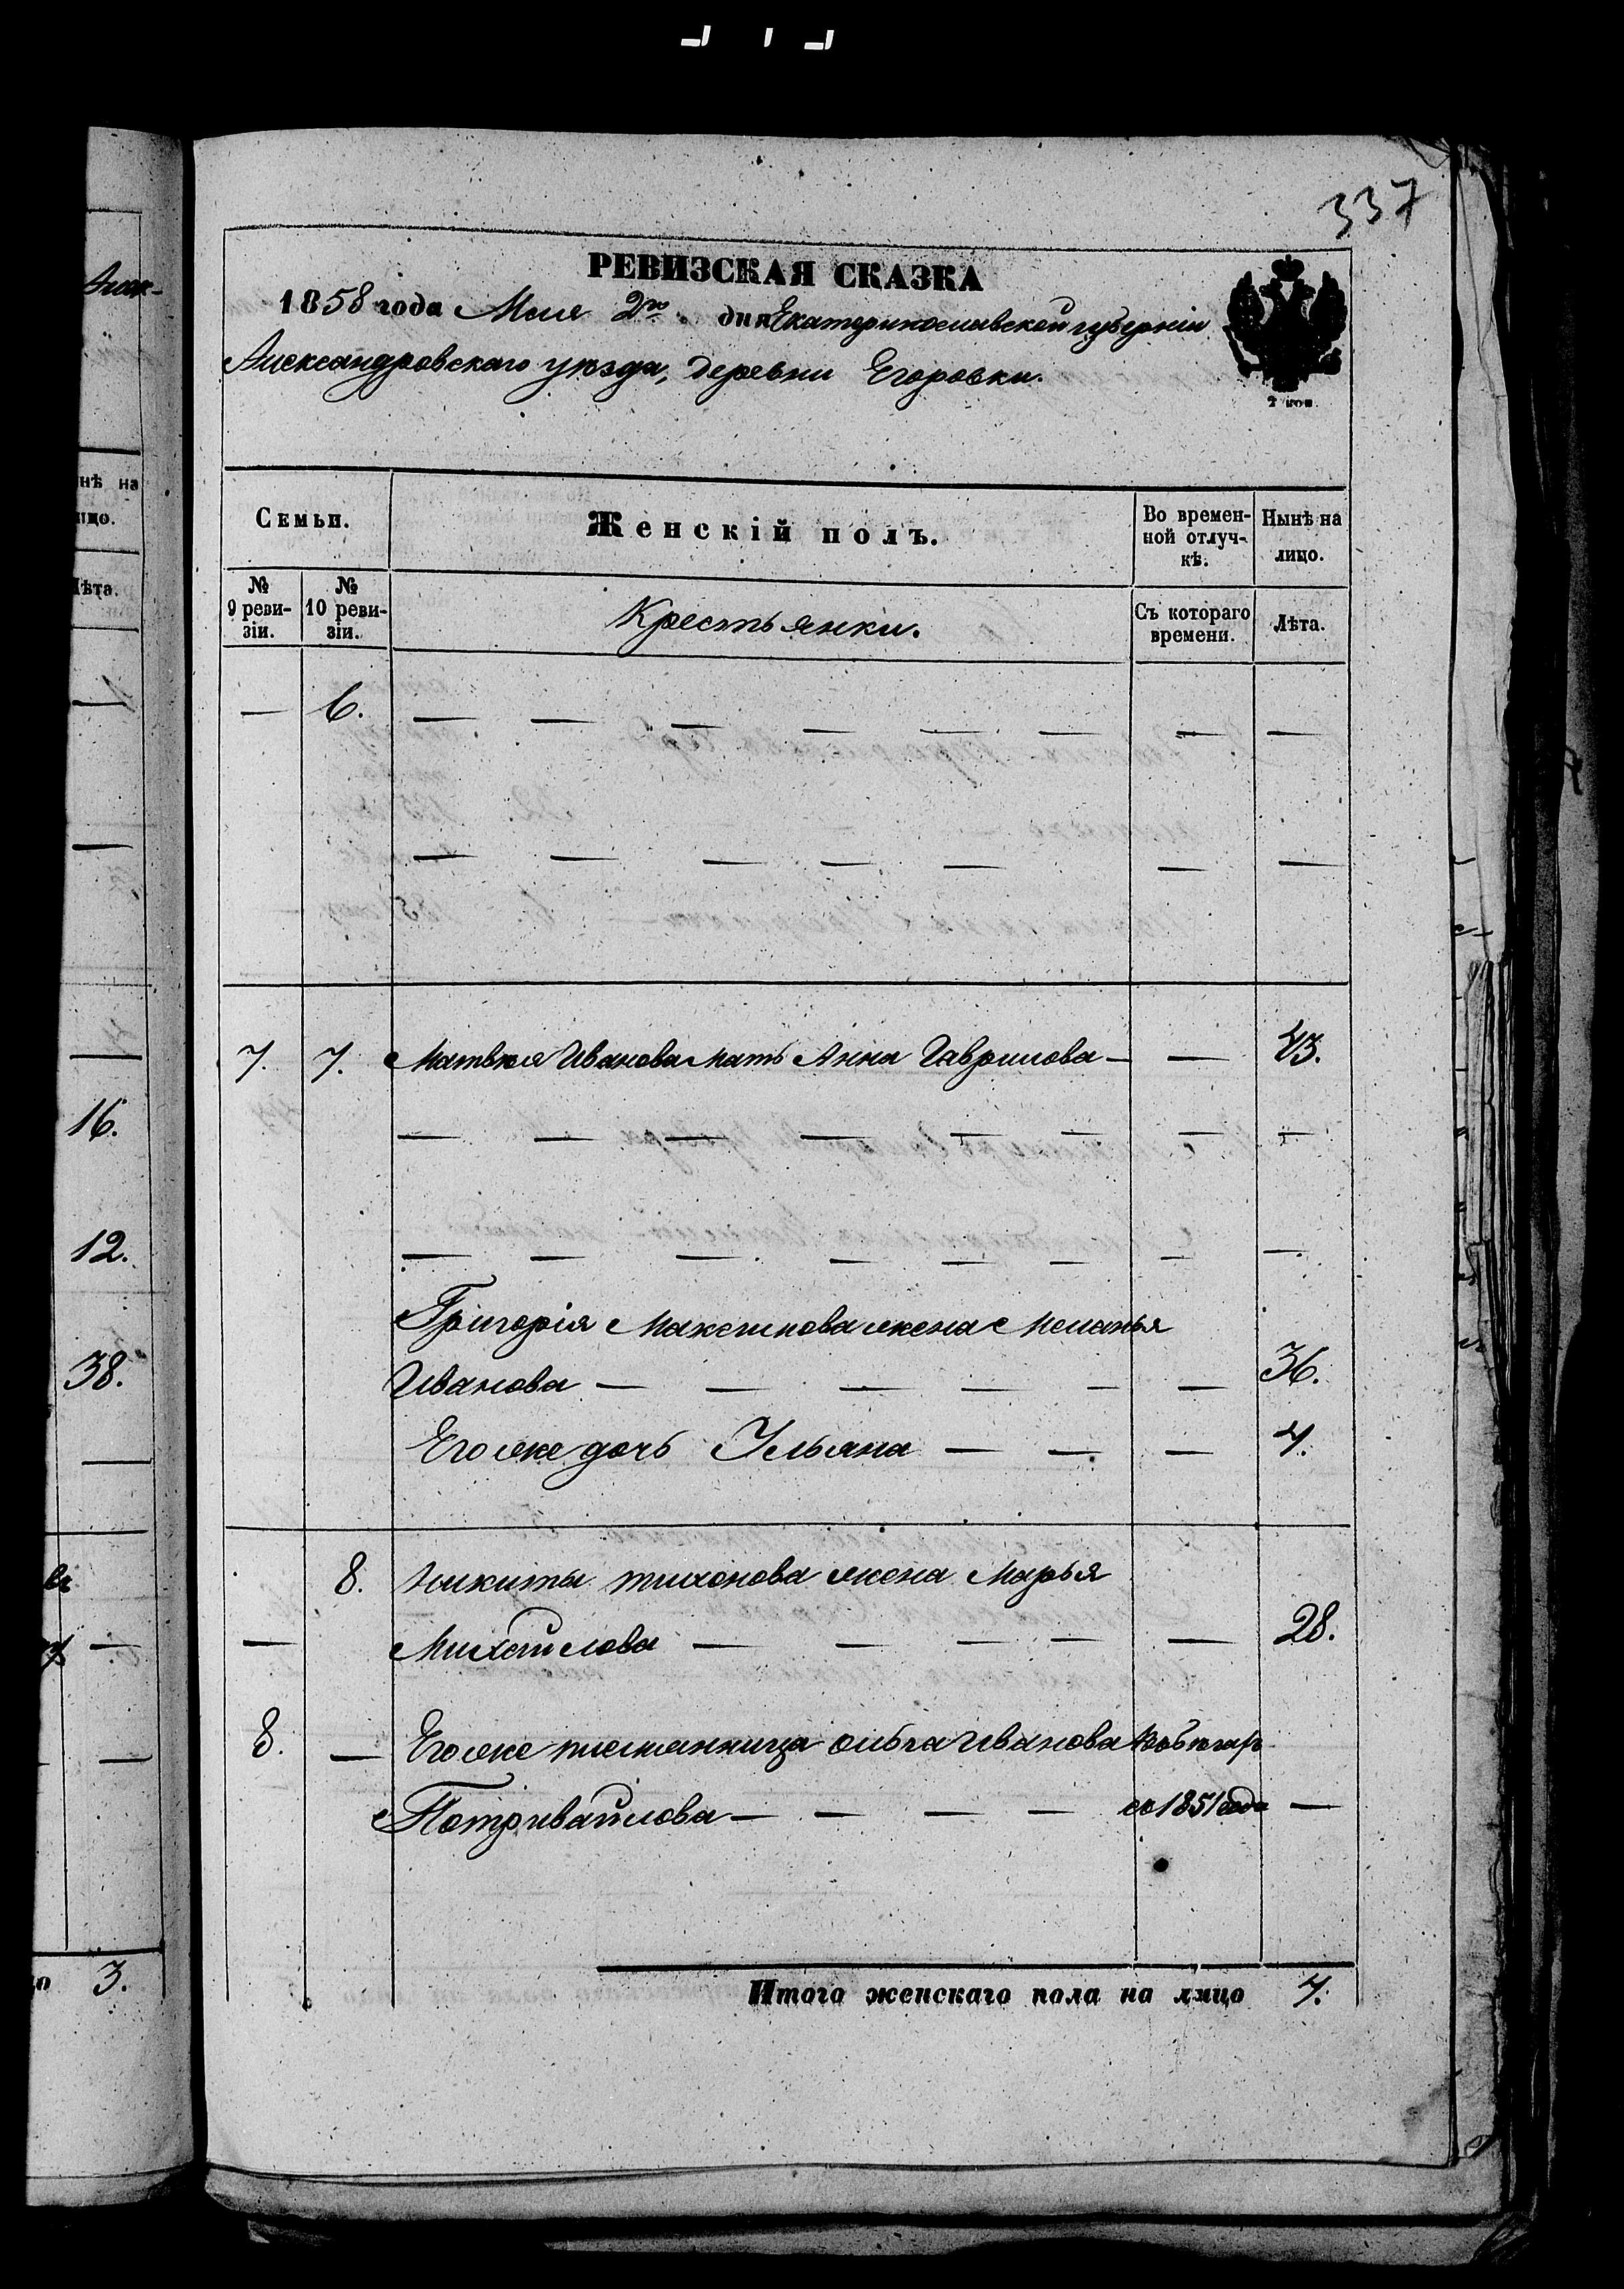 337
РЕВИЗСКАЯ СКАЗКА
1858 года Мая 2го дня Екатеринославской губерніи
Александровскаго уѣзда, деревни Егоровки.
2 коп.
Семьи. Женскій полъ. Во времен- Нынѣ на
ной отлуч- лицо.
кѣ.
№ № Крестьянки. Съ котораго Лѣта.
9 реви- 10 реви- времени.
зіи. зіи.
— 6. — — — — — — — —
— — — — — — —
7. 7. Матвѣя Иванова мать Анна Гаврилова — — 43.
— — — — — — — —
— — — — — — — —
Григорія Максимова жена Меланья
Иванова — — — — — — 36.
Его же дочь Ульяна — — — 4.
8. Никиты тихонова жена Марья
— Михайлова — — — — — 28.
8. — Его же племянница ольга Иванова
Потривайлова — — — — со 1851 года —
Итого женскаго пола на лицо 4.
нѣ на
лицо.
Лѣта.
16.
12.
38.
3.